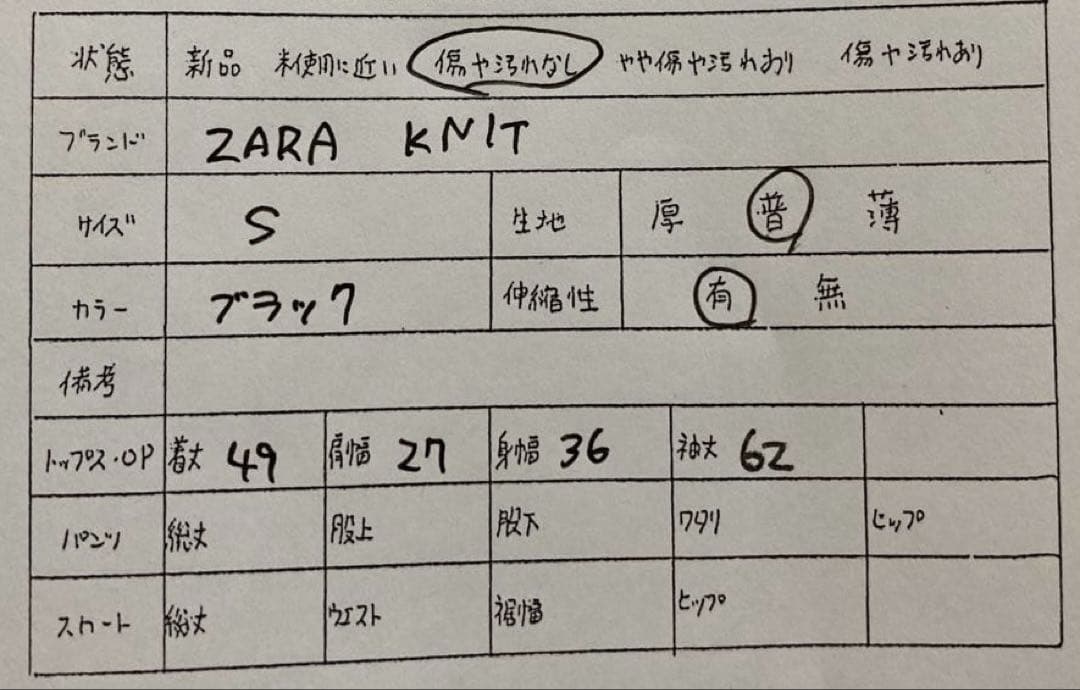 状態 新品 未使用に近い 傷や汚れなし やや傷や汚れあり 傷や汚れあり
ブランド ZARA KNIT
サイズ S 生地 厚 普 薄
カラー ブラック 伸縮性 有 無
備考
トップス・OP 着丈 49 肩幅 27 身幅 36 袖丈 62
パンツ 総丈 股上 股下 ワタリ ヒップ
スカート 総丈 ウエスト 裾幅 ヒップ